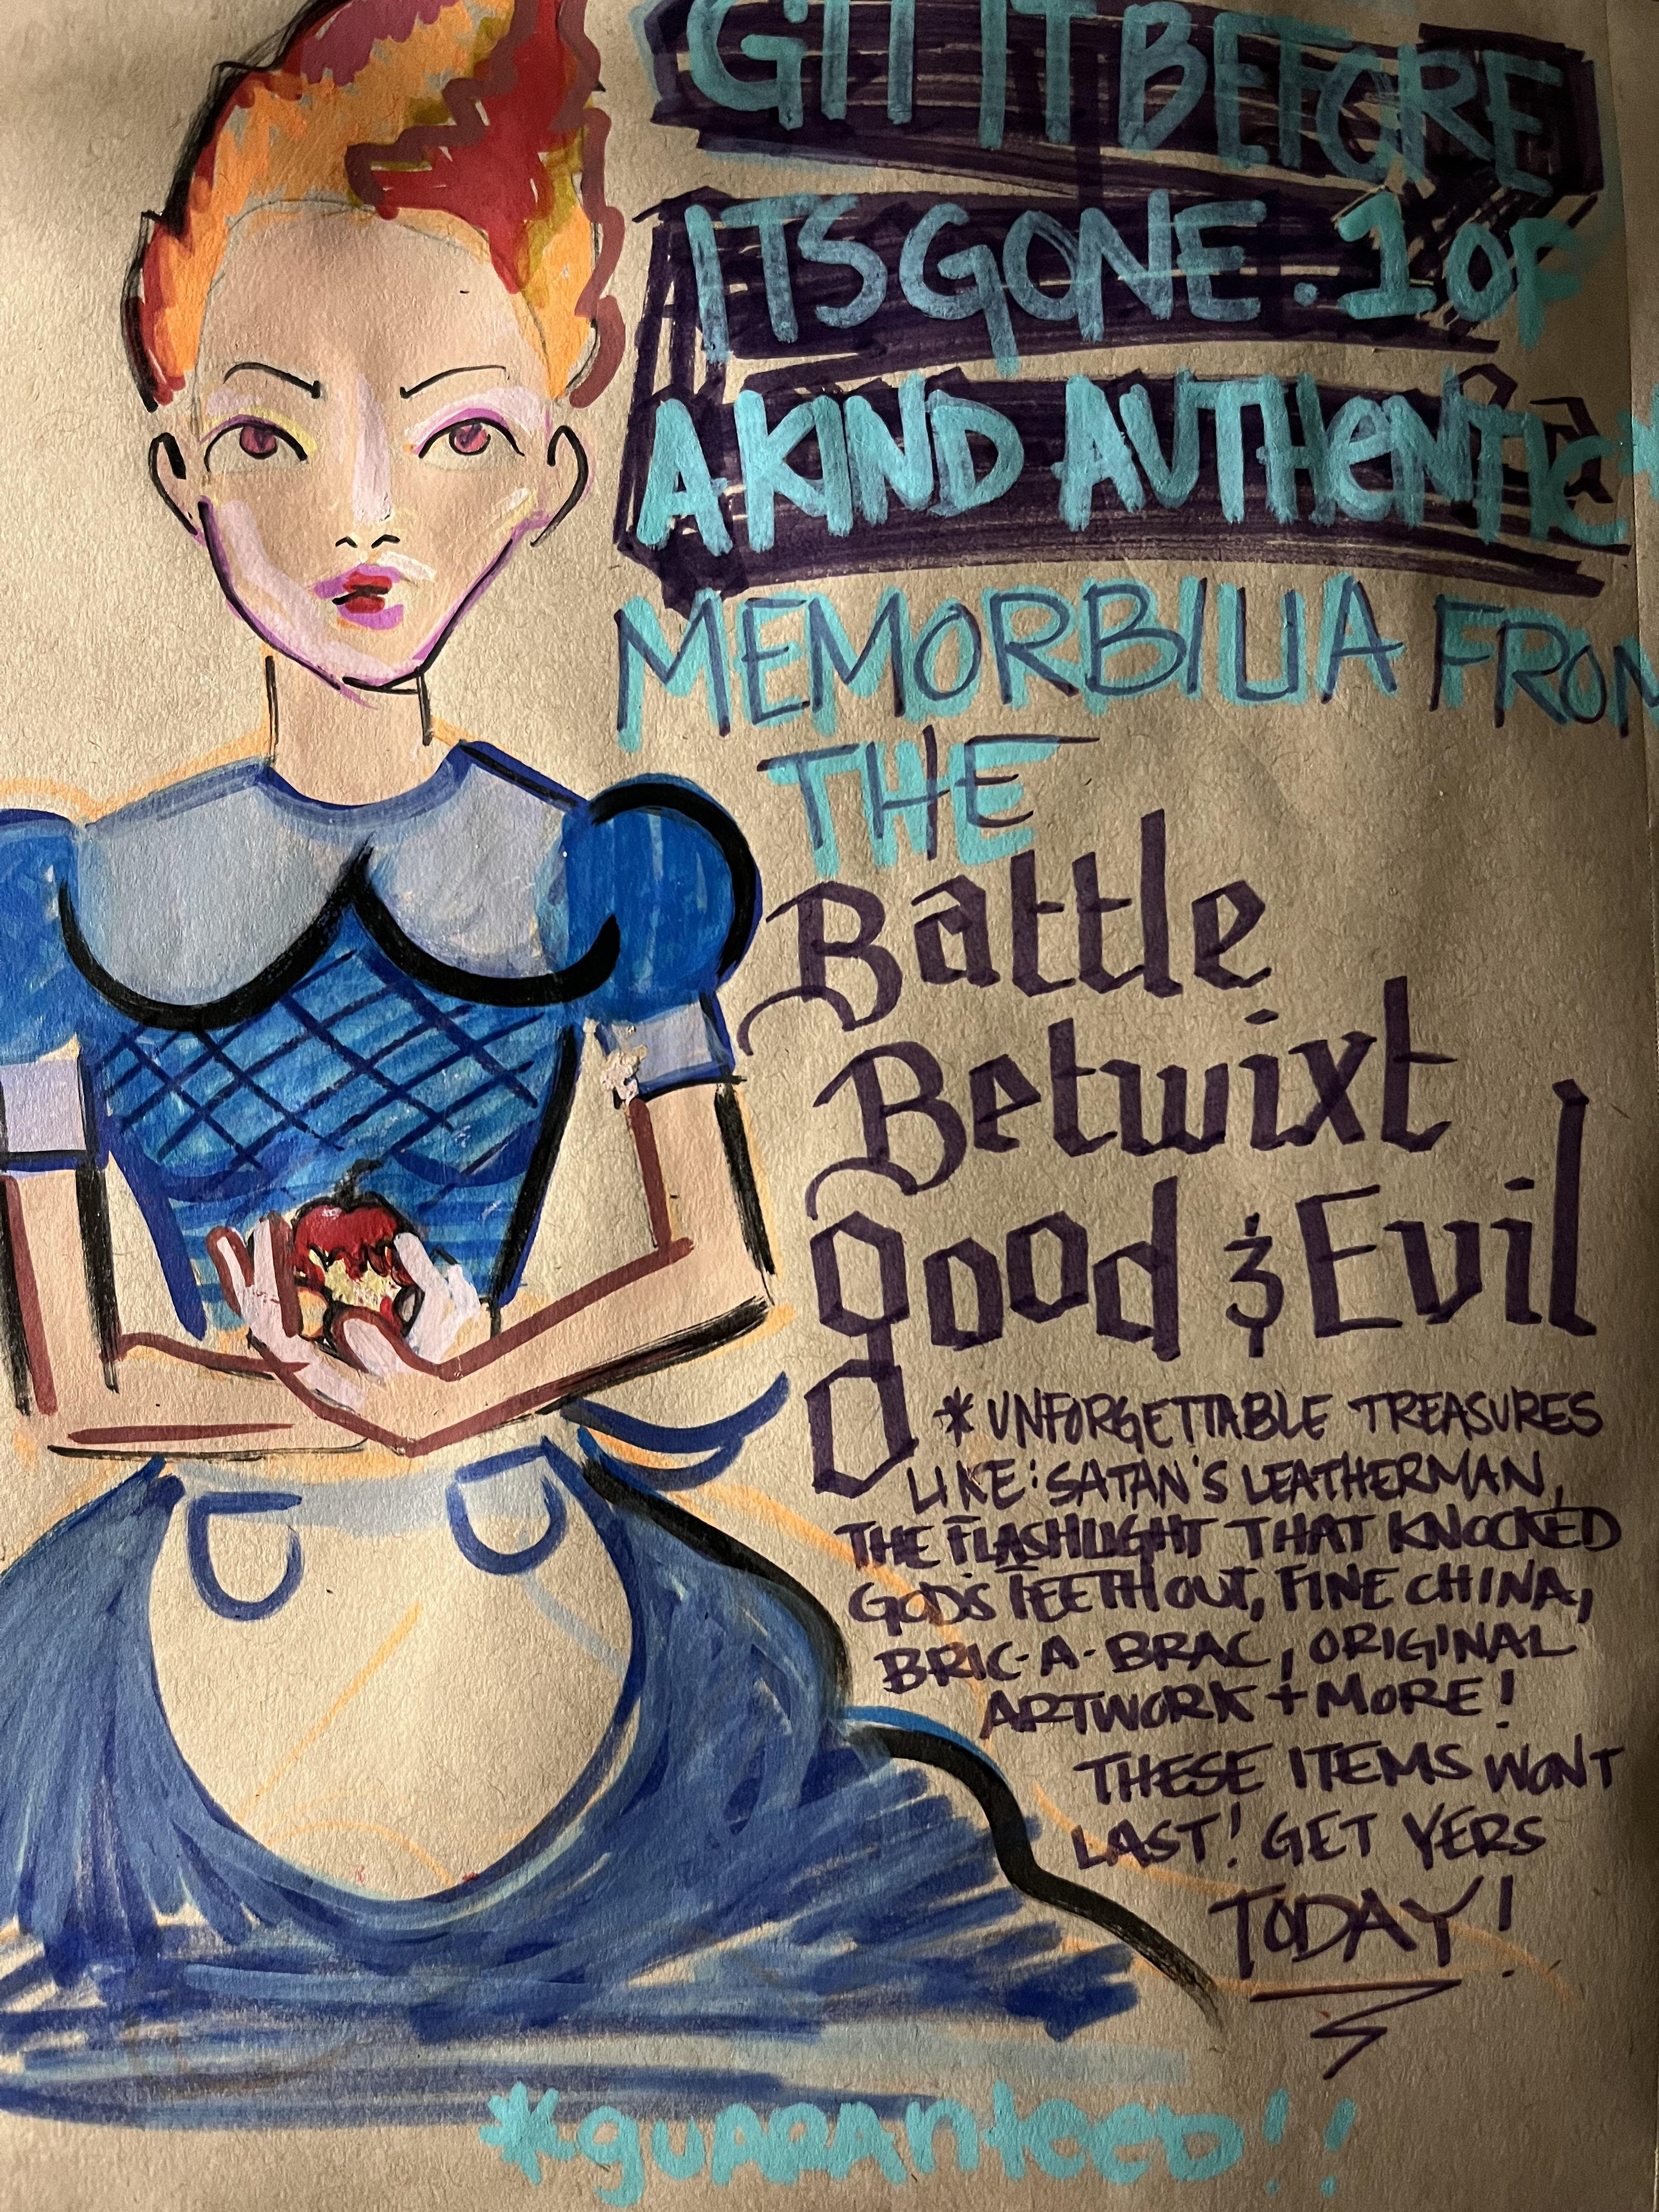 GIT IT BEFORE
ITS GONE. 1 OF
A KIND AUTHENTIC*
MEMORBILIA FROM
THE
Battle
Betwixt
good & Evil
* UNFORGETTABLE TREASURES
LIKE: SATAN'S LEATHERMAN,
THE FLASHLIGHT THAT KNOCKED
GODS TEETH OUT, FINE CHINA,
BRIC-A-BRAC, ORIGINAL
ARTWORK + MORE!
THESE ITEMS WONT
LAST! GET YERS
TODAY!
*guaranteed!!